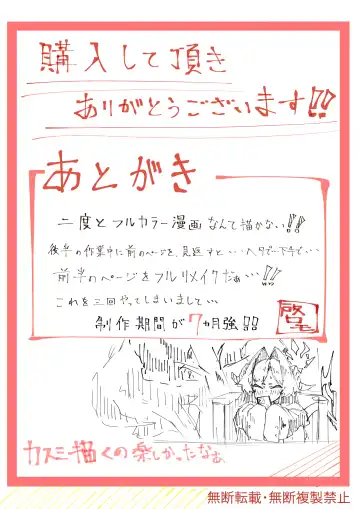 購入して頂き
ありがとうございます!!
あとがき
二度とフルカラー漫画なんて描かない!!
後半の作業中に前のページを見返すと…ヘタで下手で…
前半のページをフルリメイクだぁ…!!
これを三回やってしまいまして…
制作期間が7ヵ月強!!
カスミ描くの楽しかったなぁ
無断転載・無断複製禁止